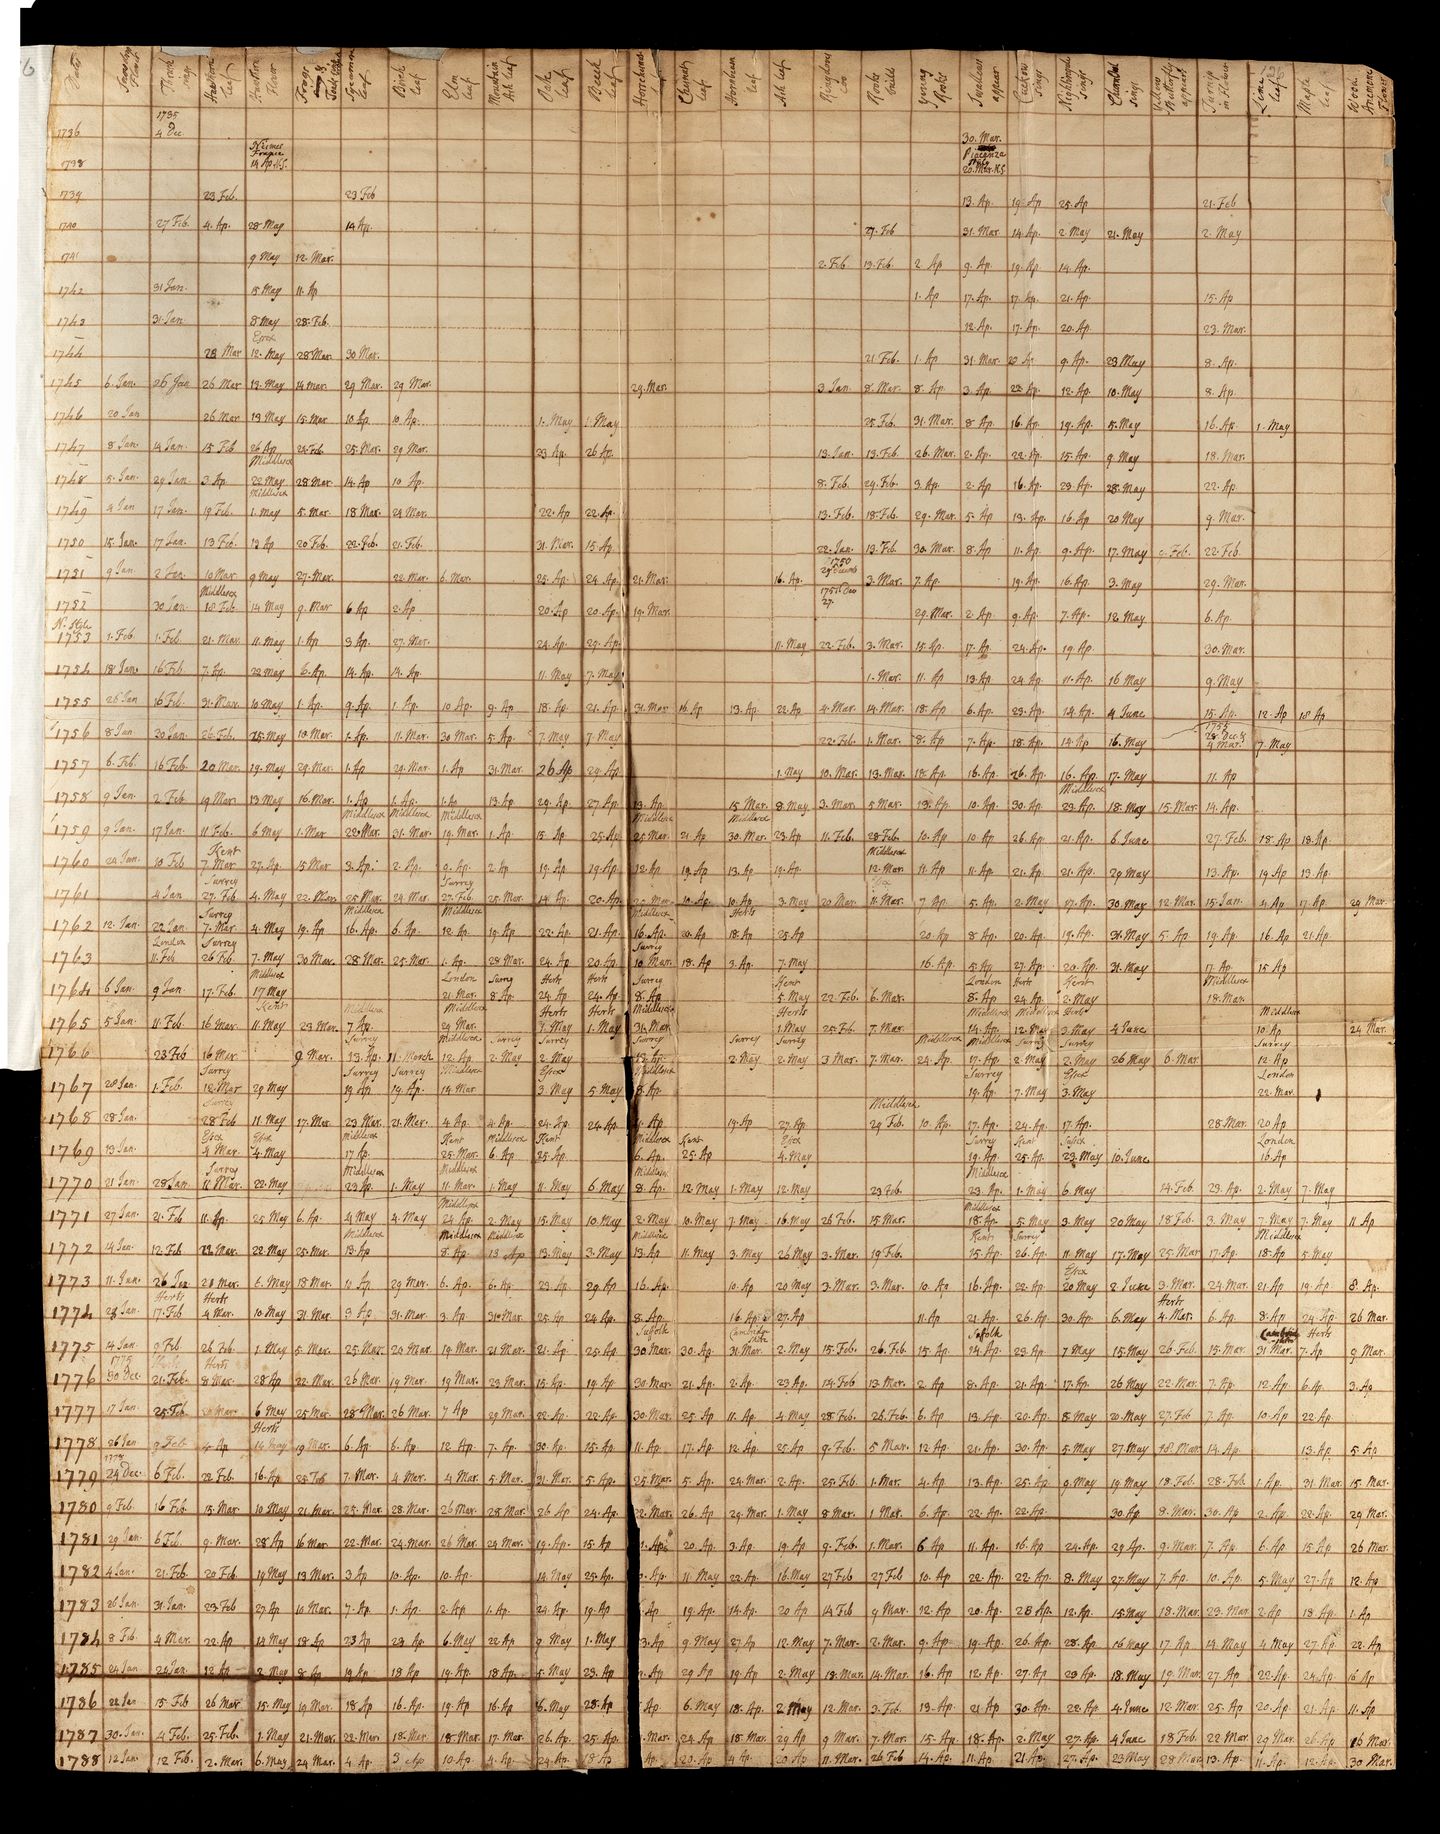 Date Snowdrop Flower Thrush sings Hawthorn leaf Hawthorn Flower Frogs & Toads Sycamore leaf Birch leaf Elm leaf Mountain Ash leaf Oak leaf Beech leaf Horschesnut Chesnut leaf Hornbeam leaf Ash leaf Ringdoves Coo Rooks build young Rooks Swallows appear Cuckow sings Nightingale sings Churnowl sings Yellow Butterfly appears Turnip in Flower Lime leaf Maple leaf Wood Anemone Flower
1735
1736 4 Dec. 30. Mar.
1738 Nismes France 14 Ap. N.S. Piacenza 20. Mar. N.S
1739 23 Feb. 23 Feb 13. Ap. 19. Ap 25. Ap 21. Feb
1740 27 Feb. 4. Ap. 28 May 14 Ap. 27. Feb 31. Mar 14. Ap. 2. May 21. May 2. May
1741 9 May 12. Mar. 2. Feb 13. Feb. 2. Ap 9. Ap. 19. Ap. 14. Ap.
1742 31 Jan. 15 May 11. Ap 1. Ap 17. Ap. 17. Ap. 21. Ap. 15. Ap
1743 31. Jan. 8 May 28. Feb. 12. Ap. 17. Ap. 20. Ap. 23. Mar.
Essex
1744 28 Mar 12. May 28 Mar 30 Mar. 21 Feb. 1. Ap 31. Mar 9. Ap. 23 May 8. Ap.
1745 6. Jan. 26 Jan 26 Mar 13. May 14 mar. 29 Mar. 29 Mar. 29. Mar. 3. Jan. 8. Mar. 8. Ap. 3. Ap 23. Ap. 12. Ap. 10. May 8. Ap.
1746 20 Jan 26 Mar 19 May 15 Mar 10 Ap. 10. Ap. 1. May 1. May 25. Feb. 31. Mar. 8. Ap 16. Ap. 19. Ap. 5. May 16. Ap. 1. May
1747 8 Jan. 14 Jan. 15 Feb 26 Ap 24. Feb. 25. Mar. 29 Mar. 23 Ap. 26 Ap. 13. Jan. 13. Feb. 26. Mar. 2. Ap. 22. Ap. 15. Ap. 9 May 18. Mar.
Middlesex
1748 5. Jan. 29 Jan. 3. Ap. 22 May 28 Mar. 14. Ap 10 Ap. 8. Feb 29. Feb. 3. Ap. 2. Ap 16. Ap. 23. Ap. 28. May 22. Ap.
Middlesex
1749 4 Jan 17 Jan. 19 Feb. 1. may 5. Mar. 18 Mar. 24 Mar. 22. Ap 22. Ap. 13. Feb. 18. Feb. 29. Mar. 5. Ap 19. Ap. 16. Ap 20 May 9. Mar.
1750 15. Jan. 17 Jan. 13 Feb. 13 Ap 20 Feb. 22. Feb. 21. Feb. 31. Mar. 15 Ap. 22. Jan. 13. Feb 30. Mar. 8. Ap 11. Ap. 9. Ap. 17. May 22. Feb.
1751 9 Jan. 2 Jan. 10 Mar. 9 May 27. Mar. 22. Mar. 6. Mar. 25. Ap. 24. Ap. 21. Mar. 16. Ap. 1750 3. Mar. 7. Ap. 19. Ap. 16. Ap. 3. May 29. Mar.
Middlesex
1752 30 Jan. 18 Feb. 14 May 9. Mar 6 Ap 2. Ap 20. Ap 20. Ap. 19. Mar. 1751 Dec 27. 29. Mar. 2. Ap. 9. Ap. 7. Ap. 12 May 6. Ap.
N. Style
1753 1. Feb. 1. Feb 21. Mar. 11. May 1. Ap 3. Ap 27. Mar. 24. Ap. 29. Ap. 11. May 22. Feb. 3. Mar. 15. Ap. 17. Ap 24. Ap. 19. Ap 30. Mar.
1754 18 Jan. 16 Feb. 7. Ap. 22 may 6. Ap. 14. Ap. 14. Ap. 11. May 7. May 1. Mar. 11. Ap 13. Ap 24. Ap 11. Ap 16 May 9. May
1755 26 Jan 16 Feb. 31. Mar. 10 May 1. Ap. 9. Ap. 1. Ap. 10. Ap. 9. Ap 18. Ap. 21. Ap. 31. Mar 16. Ap 13. Ap. 22. Ap 4. Mar. 14. Mar. 18. Ap 6. Ap. 23. Ap. 14. Ap. 4 June 15. Ap. 12. Ap 18 Ap
1756 8. Jan 30 Jan. 26. Feb. 25. May 10. Mar. 1. Ap. 11. Mar. 30 Mar. 5. Ap. 7. May 7. May 22. Feb. 1. Mar. 8. Ap 7. Ap. 18. Ap. 14. Ap 16. May 1755 28. Dec. & 4 Mar. 7. May
1757 6. Feb. 16 Feb. 20 Mar. 19. May 29. Mar. 1. Ap 29. Mar. 1. Ap 31. Mar. 26 Ap 29. Ap. 1. May 10. Mar. 13. Mar. 18. Ap. 16. Ap. 26. Ap. 16. Ap. 17. May 11. Ap
Middlesex
1758 9 Jan. 2. Feb 19 Mar. 13 May 16. Mar. 1. Ap 1. Ap. 1. Ap 13. Ap 29. Ap. 27. Ap. 13. Ap. 15 Mar. 8. May 3. Mar. 5 Mar. 13. Ap. 10. Ap. 30. Ap. 23. Ap. 18. May 15. Mar. 14. Ap.
Middlesex Middlesex Middlesex Middlesex Middlesex
1759 9 Jan. 17 Jan. 11 Feb. 6 May 1. Mar 22. Mar. 31. Mar. 19. Mar. 1. Ap. 15. Ap 25. Ap. 25 Mar. 21 Ap 30. Mar. 23. Ap 11. Feb. 28 Feb. 10. Ap. 10 Ap 26. Ap. 21. Ap. 6 June 27. Feb. 18. Ap 13. Ap.
Kent Middlesex
1760 24 Jan. 10 Feb 7 Mar. 27. Ap. 15 Mar 3. Ap. 2. Ap. 9. Ap. 2. Ap 19. Ap. 19. Ap. 12 Ap 19. Ap 13. Ap. 19. Ap. 12 Mar. 11. Ap 11. Ap. 21. Ap. 21. Ap. 29 May 13. Ap. 19 Ap 13. Ap.
Surrey Surrey Essex
1761 4 Jan 27. Feb 4. May 22. Mar 25. Mar 24 Mar. 27. Feb. 25. Mar. 14. Ap. 20. Ap. 10. Ap. 10. Ap. 3. May 20. Mar. 11. Mar. 7. Ap. 5. Ap. 2. May 17. Ap. 30. May 12. Mar. 15. Jan. 4. Ap 17. Ap. 29 Mar.
Surrey Middlesex Middlesex Middlesex Herts
1762 12. Jan. 22 Jan. 7. Mar. 4. May 19. Ap 16. Ap. 6. Ap. 12. Ap 19. Ap 22. Ap. 21. Ap. 16. Ap. 20. Ap 18. Ap 25. Ap 20. Ap 8. Ap 20. Ap. 19. Ap. 31. May 5. Ap 19. Ap. 16. Ap 21. Ap.
London Surrey Surrey
1763 11. Feb 26 Feb. 7. May 30 Mar. 28. Mar. 25. Mar. 1. Ap 28 Mar. 24. Ap 20 Ap. 10 Mar. 18. Ap 3. Ap. 7. May 16. Ap. 5. Ap 27. Ap. 20. Ap. 31. May 17. Ap. 15 Ap
Middlesex London Surrey Herts Herts Surrey Kent London Herts Kent Middlesex
1764 6 Jan. 9 Jan. 17. Feb. 17 May 21. Mar. 8. Ap. 24 Ap. 24. Ap. 8. Ap 5. May 22. Feb. 6. Mar. 8. Ap 24. Ap. 2. May 18. Mar.
Kent Middlesex Middlesex Herts Herts Middlesex Herts Middlesex Middlesex Herts Middlesex
1765 5 Jan. 11. Feb. 16 Mar. 11. May 23. Mar. 7. Ap. 29 Mar. 1. May 1. May 14. Ap. 12. May 3. May 4. June 10. Ap 24 Mar. 25. Feb. 7. Mar.
Surrey Middlesex Surrey Surrey Surrey Surrey Surrey Middlesex Middlesex Surrey Surrey Surrey
1766 23 Feb 16 Mar. 9 Mar. 13. Ap. 11. March 12. Ap 2. May 2. May 2. May 2. May 3. Mar 7. Mar. 24. Ap. 17. Ap. 2. May 2. May 26 May 6. Mar 12. Ap
Surrey Surrey Surrey Middlesex Essex Middlesex Surrey Essex London
1767 28 Jan. 1. Feb 12. Mar 29 May 19 Ap 19. Ap. 14. Mar 3. May 5. May 8. Ap. 19. Ap. 7. May 3. May 22. Mar.
Surrey Middlesex
1768 28 Jan. 28 Feb 11. May 17. Mar 23. Mar. 21. Mar. 4. Ap 4. Ap. 24. Ap. 24. Ap 19. Ap 27. Ap 29 Feb. 10. Ap. 17. Ap 24. Ap. 17. Ap. 28. Mar. 20 Ap
Essex Essex Middlesex Kent Middlesex Kent Middlesex Kent Essex Surrey Kent London
1769 13 Jan. 4 Mar. 4. May 17. Ap. 25. Mar. 6 Ap. 25. Ap. 6. Ap. 25. Ap 4. May 19. Ap 25. Ap. 23. May 10. June 16. Ap
Surrey Middlesex Middlesex Middlesex Middlesex
1770 21 Jan. 28. Jan 12 Mar. 22. May 23 Ap. 1. May 11. Mar. 1. May 11. May 6 May 8. Ap. 12 May 1. May 12. May 23 Feb. 23. Ap. 1. May 6. May 14. Feb. 23. Ap. 2. May 7. May
Middlesex Middlesex
1771 27. Jan. 21. Feb 11. Ap. 25 May 6. Ap. 4 May 4. May 24 Ap. 2. May 15. May 10. May 2. May 10. May 7. May 16. May 26 Feb. 15. Mar. 18. Ap. 5. May 3. May 20. May 18 Feb. 3. May 7. May 7. May 11 Ap
Middlesex Middlesex Middlesex Middlesex Kent Surrey Middlesex
1772 14 Jan. 12. Feb 22 Mar. 22. May 25. Mar. 13. Ap 8. Ap. 13 Ap 13. May 3. May 13. Ap 11. May 3. May 26 May 3. Mar. 19 Feb. 15. Ap. 26. Ap. 11. May 17. May 25. Mar 17. Ap. 18. Ap 5. May
Essex
1773 11. Jan. 26 Jan 21 Mar. 6. May 18 Mar. 11 Ap. 29 Mar. 6. Ap. 6. Ap. 23. Ap. 29 Ap 16. Ap. 10. Ap 20 May 3. Mar. 3. Mar. 10. Ap 16. Ap. 22. Ap. 20 May 2. June 3. Mar. 24. Mar. 21. Ap 19. Ap 8. Ap.
Herts Herts Herts
1774 23 Jan. 17. Feb 4 Mar. 10. May 31. Mar. 9 Ap 31. Mar. 3. Ap 31. Mar. 25. Ap 24. Ap. 8. Ap 16 Ap. 27. Ap 11. Ap 21. Ap. 26. Ap 30. Ap. 6. May 4. Mar. 6. Ap. 8. Ap 24. Ap. 26 Mar.
Suffolk Cambridgeshire Suffolk Cambridgeshire Herts
1775 14 Jan. 9 Feb. 26 Feb. 1. May 5. Mar. 25. Mar. 20 Mar. 19. Mar. 21 Mar. 21. Ap. 25. Ap. 30 Mar. 30. Ap. 31. Mar. 2. May 15. Feb. 26. Feb. 15. Ap. 14. Ap. 23. Ap 7 May 15. May 26. Feb. 15. Mar. 31 Mar. 7. Ap 9. Mar.
1775 Herts Herts
1776 30 Dec. 21. Feb. 8 Mar. 28 Ap 22. Mar. 26 Mar. 19 Mar. 19 Mar. 23 Mar. 15. Ap. 19. Ap 30. Mar 21. Ap. 2. Ap. 23. Ap 14. Feb 13. Mar. 2. Ap 8. Ap. 21. Ap. 17. Ap. 26 May 22. Mar. 7. Ap. 12. Ap 6. Ap. 3. Ap
1777 17 Jan. 25. Feb 6 May 25 Mar. 28 Mar. 26 Mar. 7 Ap 29 Mar. 22. Ap. 22. Ap. 30. Mar. 25. Ap 11. Ap. 4. May 28. Feb. 26. Feb. 6. Ap 13. Ap. 20. Ap. 8. May 20. May 27. Feb. 7. Ap. 10. Ap 22. Ap.
Herts
1778 26 Jan 9. Feb. 4. Ap 14 may 19 Mar. 6. Ap 6. Ap. 12. Ap 7. Ap. 30. Ap 15. Ap. 11. Ap. 17. Ap. 12. Ap. 25. Ap 9. Feb. 5 Mar. 12. Ap 21. Ap. 30. Ap 5. May 27. May 18. Mar. 14. Ap. 13. Ap 5. Ap
1778
1779 24 Dec. 6 Feb. 22 Feb. 16. Ap 25 Feb 7. Mar. 4 Mar. 4 Mar. 5. Mar. 31. Mar. 5. Ap. 25 Mar. 5. Ap. 24. Mar. 2. Ap. 25. Feb. 1. Mar. 4. Ap 13. Ap. 25. Ap 9. May 19 May 18. Feb. 28. Feb. 1. Ap. 31 Mar. 15. Mar.
1780 9 Feb. 16 Feb 15. Mar. 10 May 21. Mar. 25. Mar 28. Mar. 26. Mar. 28 Mar. 26 Ap 24. Ap. 22. Mar. 26. Ap 29. Mar. 1. May 8 Mar. 1 Mar. 6. Ap 22. Ap. 22. Ap. 30. Ap 8. Mar. 30. Ap 2. Ap. 22. Ap. 29 Mar.
1781 29 Jan. 6 Feb. 9. Mar. 28 Ap 16 Mar. 22. Mar. 24. Mar. 26 Mar. 24 Mar. 19. Ap. 15. Ap 1. Ap. 20. Ap. 3. Ap. 19. Ap 9. Feb. 1. Mar. 6 Ap 11. Ap. 16. Ap. 24. Ap. 29 Ap. 9. Mar. 7. Ap. 6. Ap 15. Ap 26 Mar.
1782 4 Jan. 21. Feb. 20 Feb. 19 May 13 Mar. 3 Ap 10. Ap. 10. Ap. 14. May 25. Ap. 11. May 22. Ap. 16. May 27 Feb 27 Feb 10. Ap 22. Ap. 22. Ap. 8. May 27. May 7. Ap. 10. Ap. 5. May 27. Ap. 12. Ap
1783 26 Jan. 31. Jan. 23. Feb 27 Ap 10 Mar. 7. Ap. 1. Ap. 2. Ap 1. Ap. 24. Ap. 19. Ap 19. Ap. 14. Ap. 20 Ap 14 Feb 9 Mar. 12. Ap 20. Ap. 28 Ap. 12. Ap. 15. May 18. Mar. 23. Mar. 2. Ap 18. Ap 1. Ap
1784 8 Feb. 4 Mar. 22. Ap 14 May 18 Ap 23 Ap 23. Ap. 6. May 22. Ap 9 May 1. May 23. Ap 9 May 27. Ap 12. May 7. Mar. 2. Mar. 9. Ap 19. Ap. 26. Ap. 28. Ap 16 May 17. Ap 14. May 4 May 27. Ap 22. Ap
1785 24 Jan 24 Jan. 12 Ap 2. May 8 Ap 19 Ap 18 Ap 19. Ap. 18 Ap. 5. May 23. Ap. 29 Ap 19. Ap 2. May 18. Mar. 14. Mar. 16. Ap 12. Ap. 27. Ap 23 Ap 18. May 19. Mar. 27. Ap 22. Ap. 24. Ap. 16 Ap
1786 22 Jan 15. Feb 26 Mar 15. May 19 Mar. 18 Ap 16. Ap. 19. Ap 16. Ap 6. May 28. Ap 6. May 18. Ap. 2 May 12. Mar. 3. Feb. 13. Ap 21 Ap 30. Ap. 22. Ap 4. June 12. Mar. 25. Ap 20. Ap. 21. Ap 11. Ap
1787 30. Jan. 4 Feb. 25. Feb. 1. May 21. Mar. 22. Mar 18. Mar 18. Mar. 17. Mar. 26. Ap. 25. Ap. 24. Ap 18. Mar. 29. Ap 9 Mar. 7. Mar. 15. Ap 18. Ap. 2. May 27. Ap 4 June 18 Feb. 22. Mar 29 Mar. 26. Ap 16 Mar.
1788 12 Jan. 12 Feb. 2. Mar. 6. May 24 Mar. 4 Ap 3 Ap 10 Ap 4. Ap. 24. Ap. 18 Ap 20. Ap 4 Ap 20 Ap 11. Mar. 26 Feb 14. Ap. 11. Ap 21 Ap. 27. Ap. 23 May 28 Mar 13. Ap 11. Ap. 12. Ap 30 Mar.